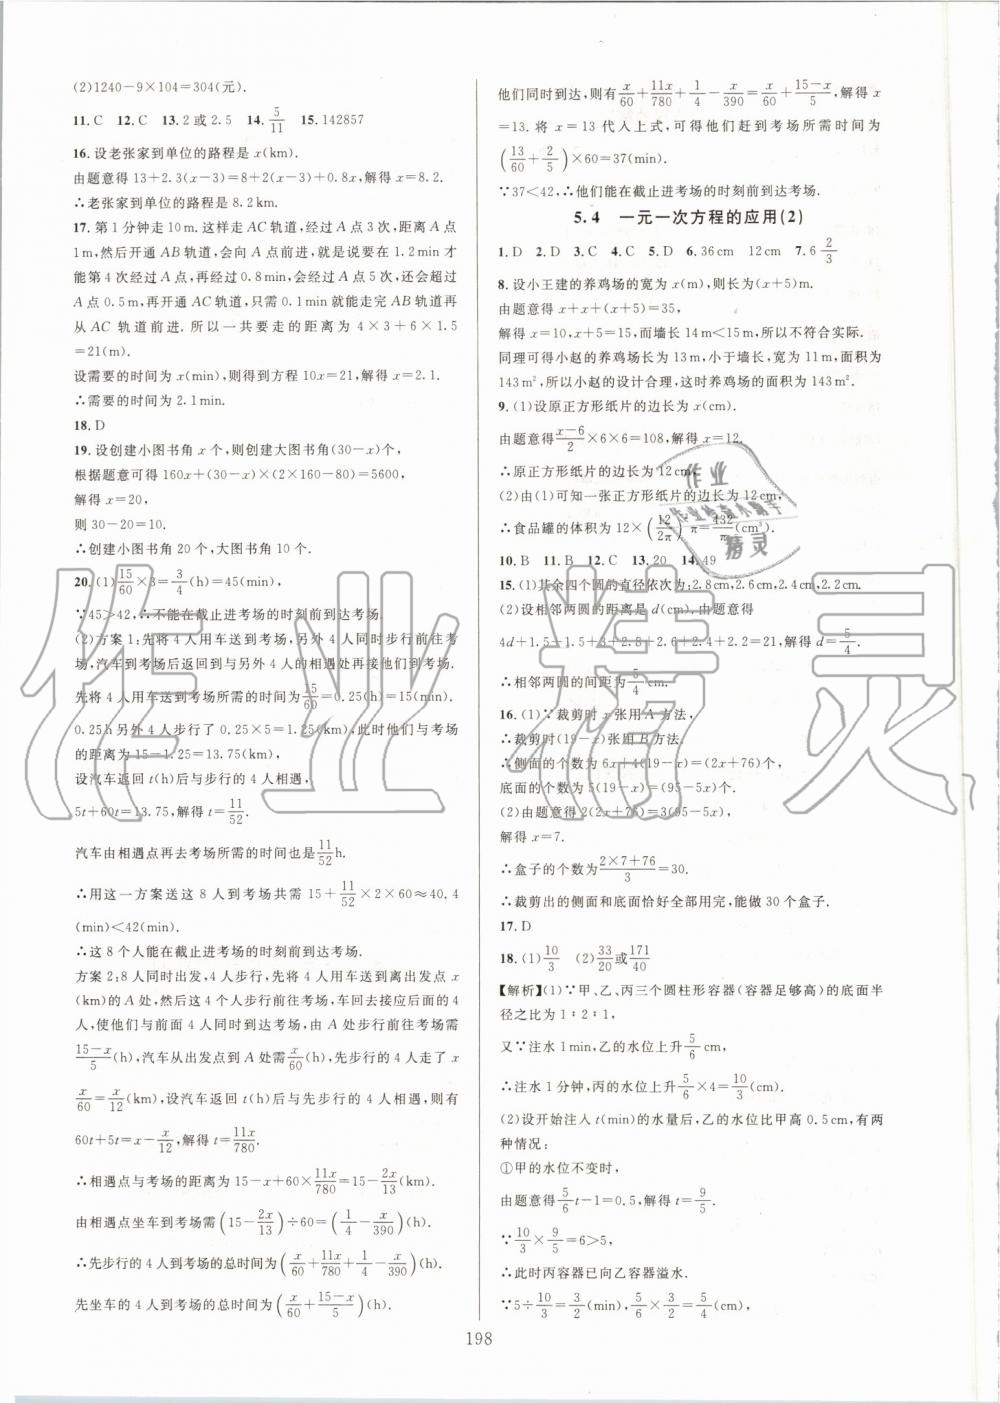 (2)1240－9×104＝304(元).
11. C　12. C　13. 2 或 2.5　14. 5/11　15. 142857
16. 设老张家到单位的路程是 x(km).
由题意得 13＋2.3(x－3)＝8＋2(x－3)＋0.8x,解得 x＝8.2.
∴老张家到单位的路程是 8.2km.
17. 第 1 分钟走 10m. 这样走 AC 轨道,经过 A 点 3 次,距离 A 点
1m,然后开通 AB 轨道,会向 A 点前进,就是说要在 1.2min 才
能第 4 次经过 A 点,再经过 0.8min,会经过 A 点 5 次,还会超过
A 点 0.5m,再开通 AC 轨道,只需 0.1min 就能走完 AB 轨道再
从 AC 轨道前进. 所以一共要走的距离为 4×3＋6×1.5
＝21(m).
设需要的时间为 x(min),则得到方程 10x＝21,解得 x＝2.1.
∴需要的时间为 2.1min.
18. D
19. 设创建小图书角 x 个,则创建大图书角(30－x)个,
根据题意可得 160x＋(30－x)×80＋(30－x)×80＝5600,
解得 x＝20,
则 30－20＝10.
∴创建小图书角 20 个,大图书角 10 个.
20. (1)15/60×3＝3/4(h)＝45(min),
∵45＞42,∴不能在截止进考场的时刻前到达考场.
(2)方案 1:先将 4 人用车送到考场,另外 4 人同时步行前往考
场,汽车到考场后返回到与另外 4 人的相遇处再接他们到考场.
先将 4 人用车送到考场所需的时间为15/60＝0.25(h)＝15(min).
0.25h 另外 4 人步行了 0.25×5＝1.25(km),此时他们与考场
的距离为 15－1.25＝13.75(km).
设汽车返回 t(h)后与步行的 4 人相遇,
5t＋60t＝13.75,解得 t＝11/52.
汽车由相遇点再去考场所需的时间也是11/52h.
∴用这一方案送这 8 人到考场共需 15＋11/52×2×60≈40.4
(min)＜42(min).
∴这 8 个人能在截止进考场的时刻前到达考场.
方案 2:8 人同时出发,4 人步行,先将 4 人用车送到离出发点 x
(km)的 A 处,然后这 4 人步行前往考场,车回去接应后面的 4
人,使他们与前面 4 人同时到达考场,由 A 处步行前考场需
15－x/5(h),汽车从出发点到 A 处需x/60(h),先步行的 4 人走了 x
x/60＝x/12(km),设汽车返回 t(h)后与先步行的 4 人相遇,则有
60t＋5t＝x－x/12,解得 t＝11x/780.
∴相遇点与考场的距离为 15－x＋60×11x/780＝15－2x/13(km).
由相遇点坐车到考场需(15－2x/13)÷60＝(1/4－x/390)(h).
∴先步行的 4 人到考场的总时间为(x/60＋11x/780＋1/4－x/390)(h),
先坐车的 4 人到考场的总时间为(x/60＋15－x/5)(h).
他们同时到达,则有x/60＋11x/780＋1/4－x/390＝x/60＋15－x/5,解得 x
＝13. 将 x＝13 代入上式,可得他们赶到考场所需时间为
(13/60＋2/5)×60＝37(min).
∵37＜42,∴他们能在截止进考场的时刻前到达考场.
5.4　一元一次方程的应用(2)
1. D　2. D　3. C　4. C　5. D　6. 36cm　12cm　7. 6 2/3
8. 设小王建的养鸡场的宽为 x(m),则长为(x＋5)m.
由题意得 x＋x＋(x＋5)＝35,
解得 x＝10,x＋5＝15,而墙长 14m＜15m,所以不符合实际.
同理可得小赵的养鸡场长为 13m,小于墙长,宽为 11m,面积为
143m²,所以小赵的设计合理,这时养鸡场的面积为 143m².
9. (1)设原正方形纸片的边长为 x(cm).
由题意得x－6/2×6×6＝108,解得 x＝12.
∴原正方形纸片的边长为 12cm.
(2)由(1)可知一张正方形纸片的边长为 12cm,
∴食品罐的体积为 12×(12/2π)²π＝432/π(cm³).
10. B　11. B　12. C　13. 20　14. 49
15. (1)其余四个圆的直径依次为:2.8cm,2.6cm,2.4cm,2.2cm.
(2)设相邻两圆的距离是 d(cm). 由题意得
4d＋1.5＋1.5＋3＋2.8＋2.6＋2.4＋2.2＝21,解得 d＝5/4.
∴相邻两圆的间距为5/4cm.
16. (1)∵裁剪时 x 张用 A 方法,
∴裁剪时(19－x)张用 B 方法.
∴侧面的个数为 6x＋4(19－x)＝(2x＋76)个,
底面的个数为 5(19－x)＝(95－5x)个.
(2)由题意得 2(2x＋76)＝3(95－5x),
解得 x＝7.
∴盒子的个数为2×7＋76/3＝30.
∴裁剪出的侧面和底面恰好全部用完,能做 30 个盒子.
17. D
18. (1)10/3　(2)33/20或171/40
【解析】(1)∵甲、乙、丙三个圆柱形容器(容器足够高)的底面半
径之比为 1∶2∶1,
又∵注水 1min,乙的水位上升5/6cm,
∴注水 1分钟,丙的水位上升5/6×4＝10/3(cm).
(2)设开始注入 t(min)的水量后,乙的水位比甲高 0.5cm,有两
种情况:
①甲的水位不变时,
由题意得5/6t－1＝0.5,解得 t＝9/5.
∵10/3×9/5＝6＞5,
∴此时丙容器已向乙容器溢水.
∵5÷10/3＝3/2(min),5/6×3/2＝5/4(cm),
198
作业精灵
作业
作业检查小帮手
精灵